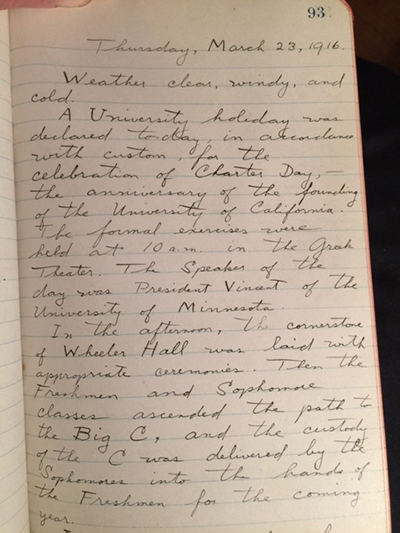 93
Thursday, March 23, 1916.
Weather clear, windy, and
cold.
A University holiday was
declared to-day, in accordance
with custom, for the
celebration of Charter Day, —
the anniversary of the founding
of the University of California.
The formal exercises were
held at 10 a.m. in the Greek
Theater. The Speaker of the
day was President Vincent of the
University of Minnesota.
In the afternoon, the cornerstone
of Wheeler Hall was laid with
appropriate ceremonies. Then the
Freshmen and Sophomore
classes ascended the path to
the Big C, and the custody
of the C was delivered by the
Sophomores into the hands of
the Freshmen for the coming
year.